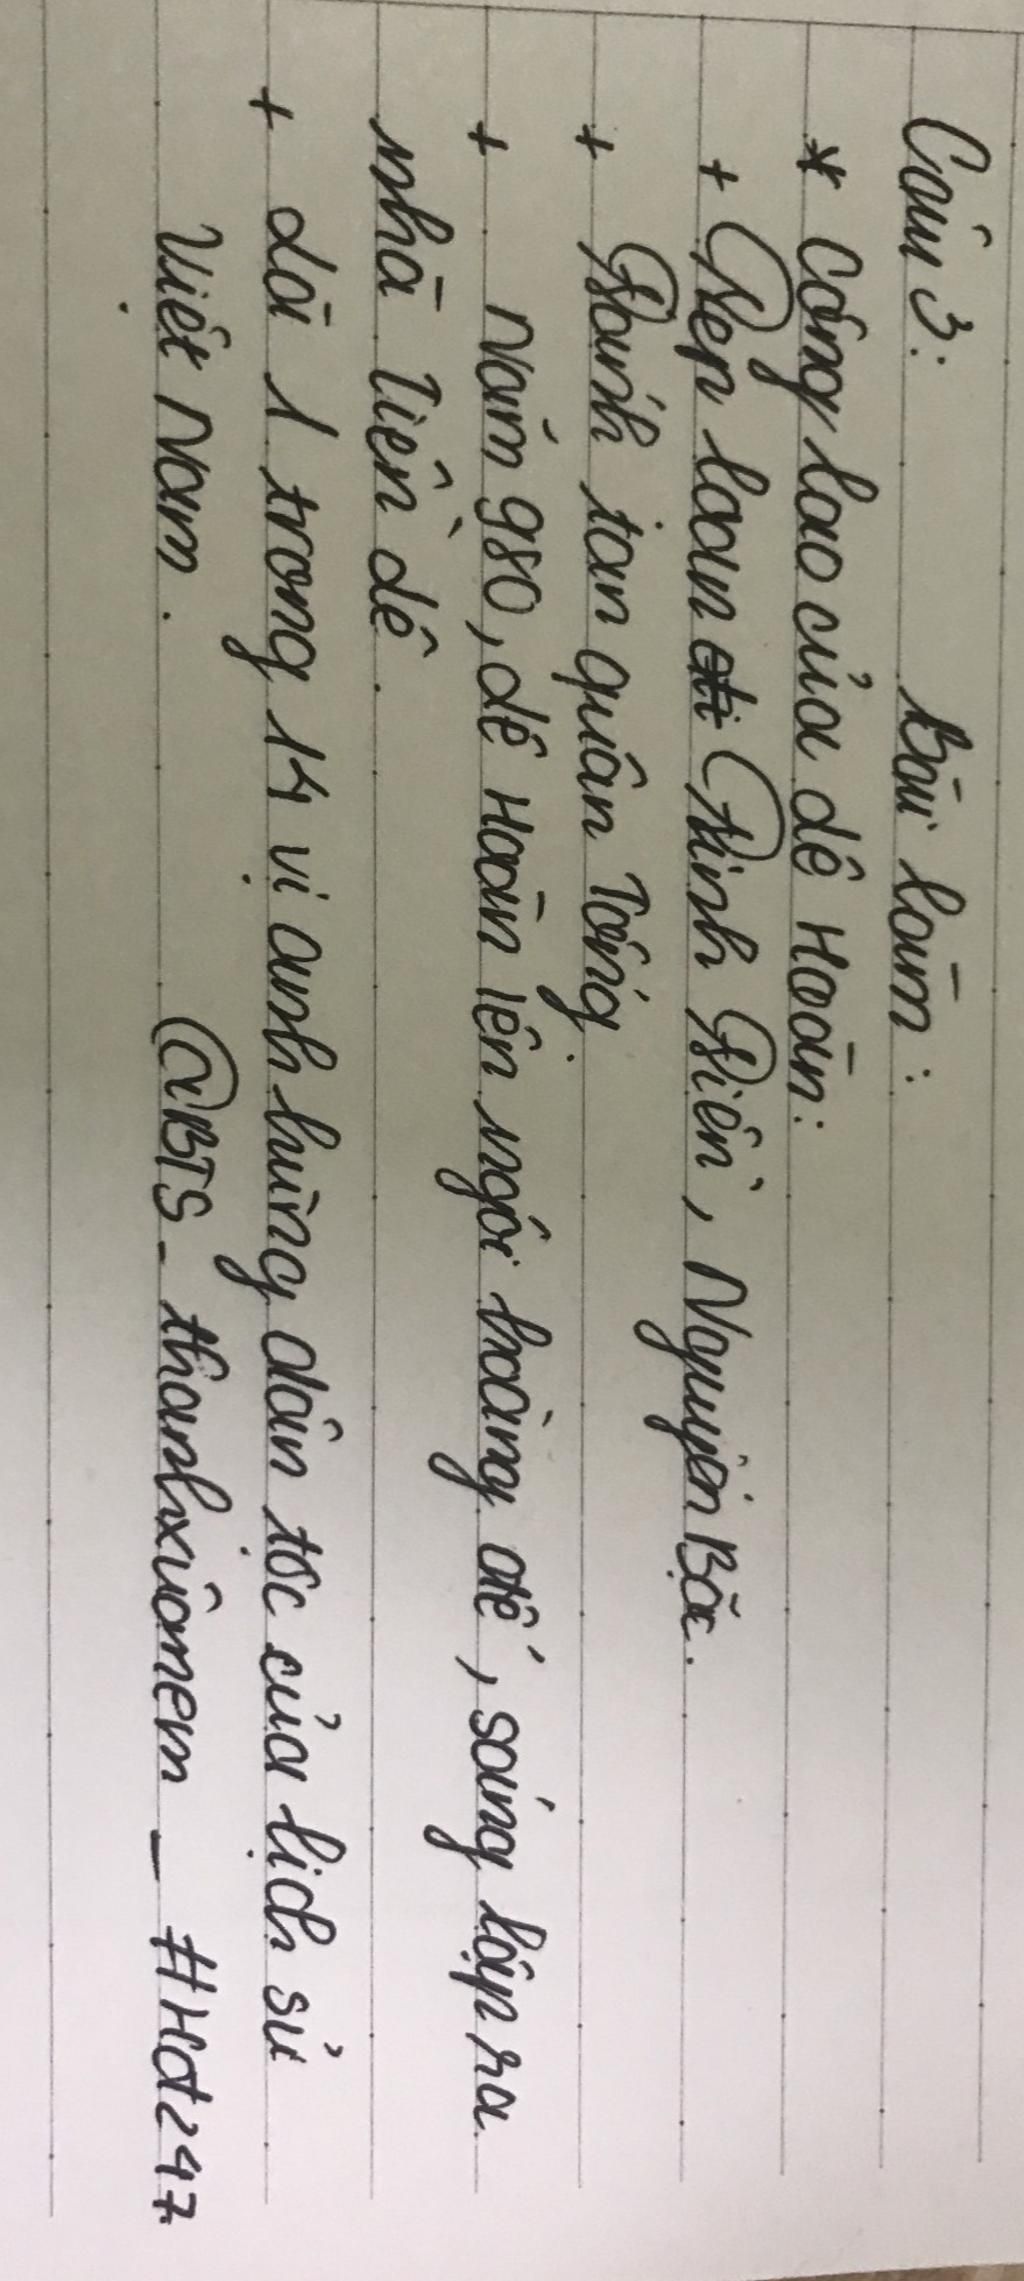 Câu 3:
Bài làm:
* Công lao của Lê Hoàn:
+ Dẹp loạn Đinh Điền, Nguyễn Bặc.
+ Đánh tan quân Tống.
+ Năm 980, Lê Hoàn lên ngôi hoàng đế, sáng lập ra
nhà Tiền Lê.
+ Là 1 trong 14 vị anh hùng dân tộc của lịch sử
Việt Nam.
@BTS_thanhxuânem_#Hd247